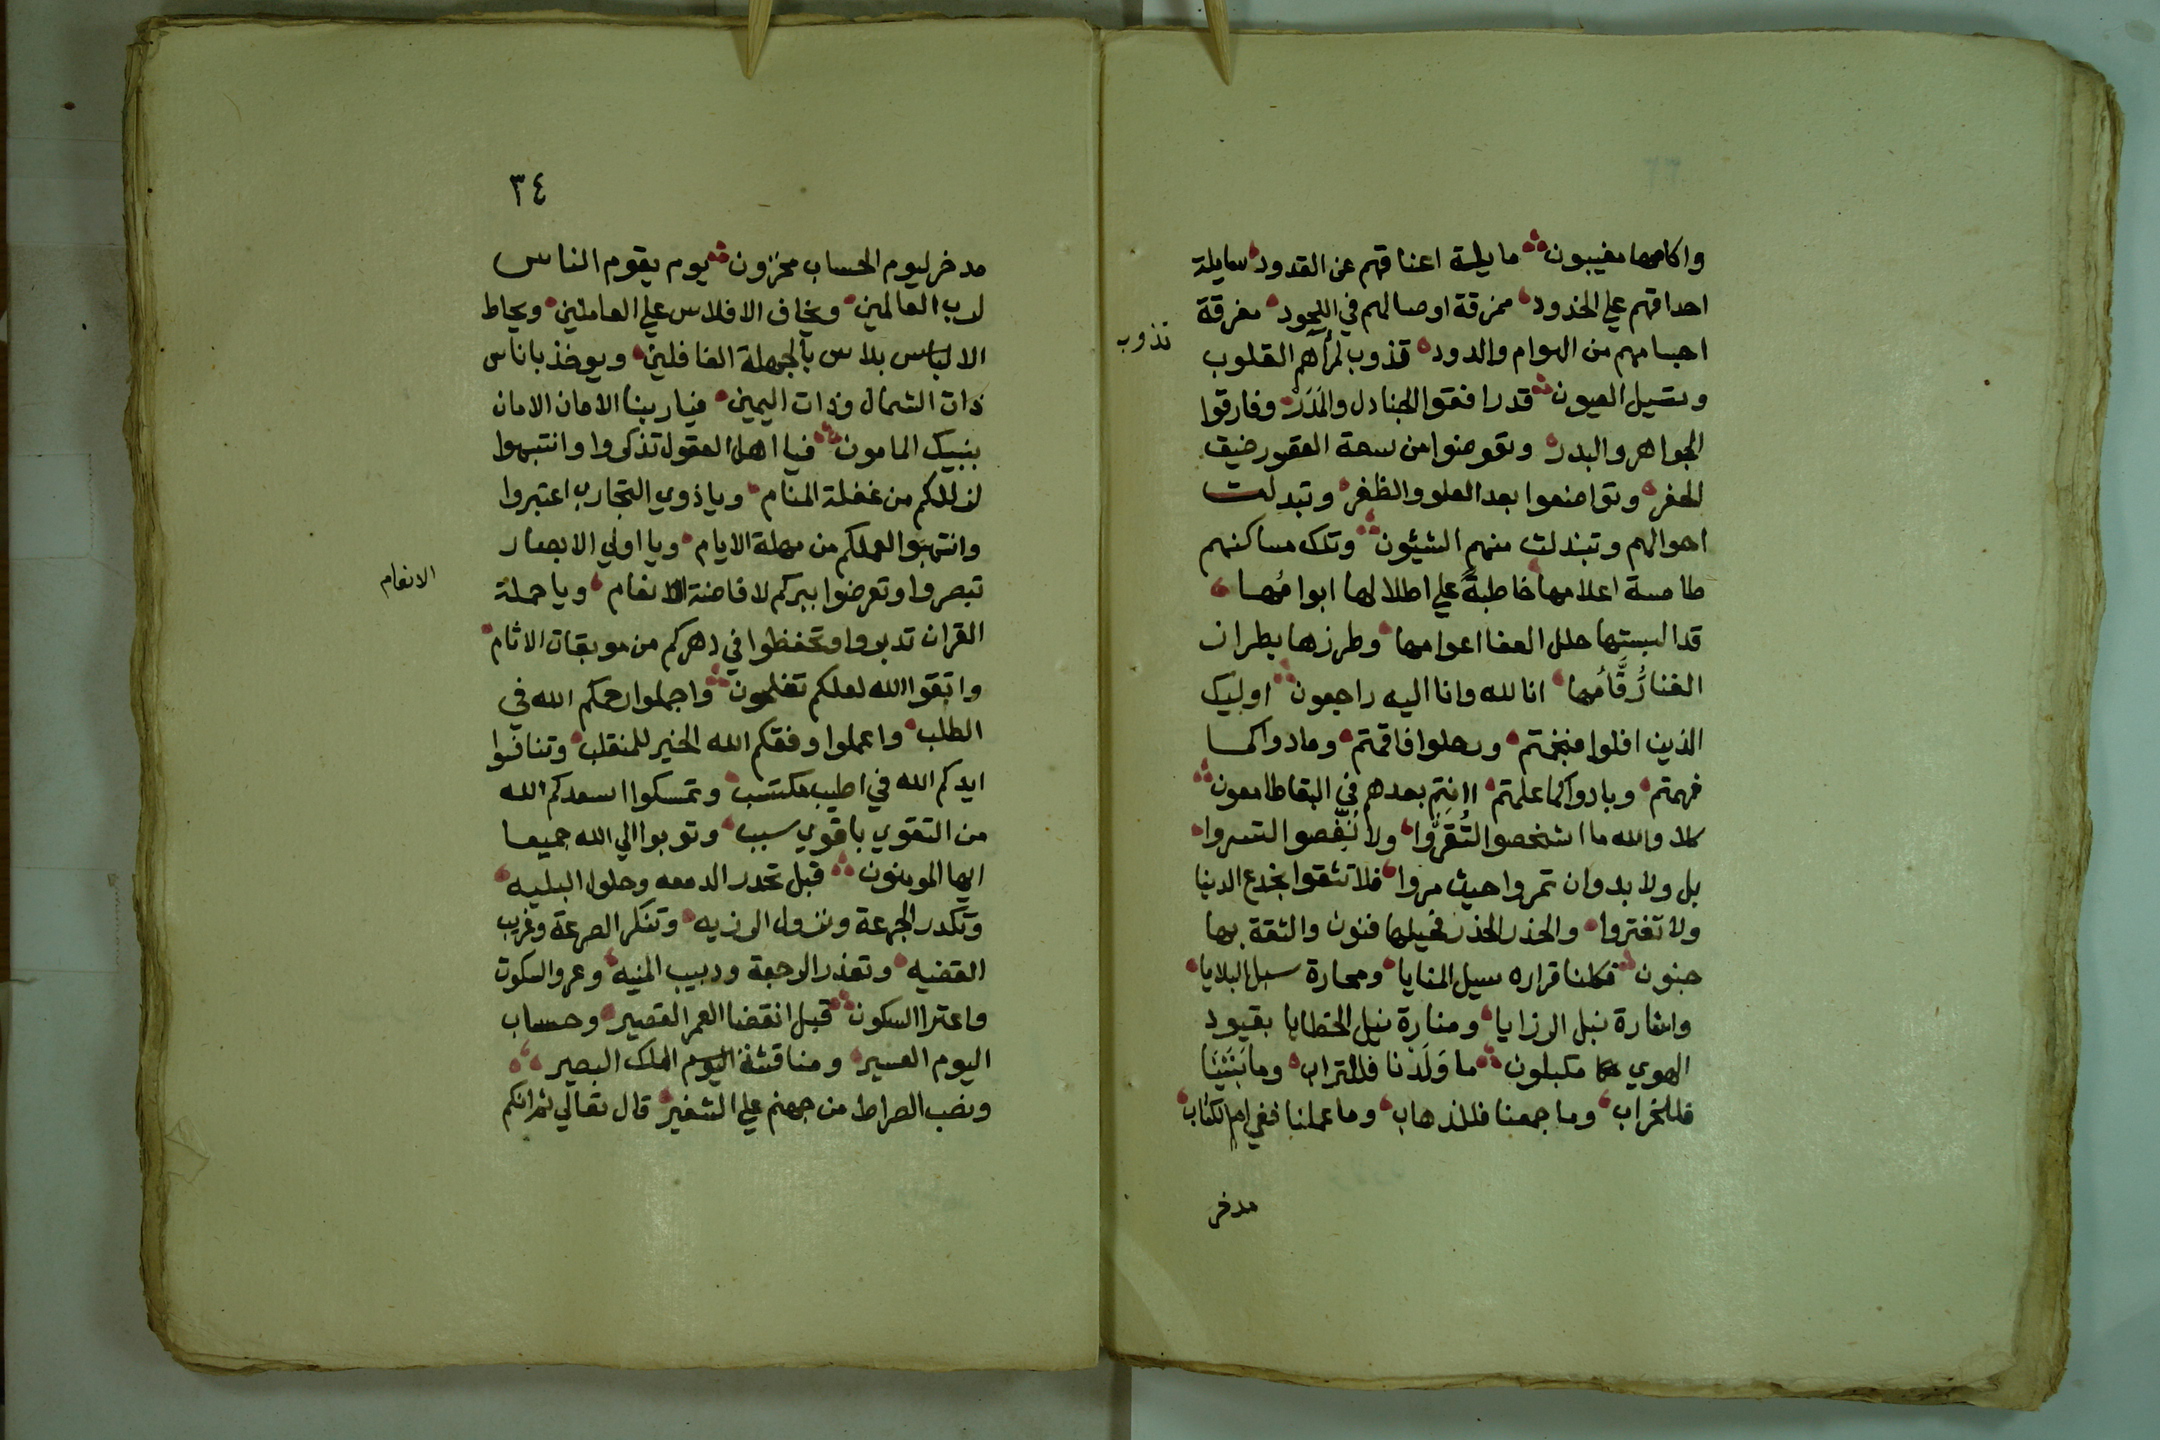 واكامها مغيبون مايلة اعناقهم عن القدود سايلة
احداقهم علي الخدود ممزقة اوصالهم في اللحود مفرقة
اجسامهم من الهوام والدود قذوب لمرآهم القلوب
تذوب
وتسيل العيون قد رافقوا الجنادل والمَدَرْ وفارقوا
الجواهر والبدر وتعوضوا من سعة القصور ضيق
الحفر وتواضعوا بعد العلو والظفر وتبدلت
احوالهم وتبندلت منهم الشيئون وتلك مساكنهم
طامسة اعلامها خاطبةً علي اطلالها ابوامُها
قد البستها حلل العفا اعوامها وطرزها بطران
الفنا رُقَّامُها انا لله وانا اليه راجعون اوليك
الذين افلوا فنجمتم ورحلوا فاقمتم ومادوا كما
فهمتم وبادوا كما علمتم اانتم بعدهم في البقا طامعون
كلا والله ما اشخصوا لتُقَرُّوا ولا نُغِّصوا لتسروا
بل ولا بد وان تمروا حيث مروا فلا تثقوا بخدع الدنيا
ولا تغتروا والحذر الحذر فحيلها فنون والثقة بها
جنون فكلنا قراره سيل المنايا ومحارة سبل البلايا
واشارة نبل الرزايا ومنارة نيل الخطايا بقيود
الهوي مكبلون ما وَلَدْنا فللتراب وما بَنَيْنَا
فللخراب وما جمعنا فللذهاب وما عملنا ففي ام الكتاب
مدخر
٣٤
مدخر ليوم الحساب مخزون يوم يقوم الناس
لرب العالمين ويخاف الافلاس علي العاملين ويحاط
الالباس بلاس بالجهلة الغافلين ويوخذ باناس
ذات الشمال وذات اليمين فيا ربنا الامان الامان
بنبيك المامون فيا اهل العقول تذكروا وانتبهوا
لزللكم من غفلة المنام ويا ذوي التجارب اعتبروا
وانتهبوا لعملكم من مهلة الايام ويا اولي الابصار
تبصروا وتعرضوا ببركم لافاضة الانعام ويا حملة
الانعام
القران تدبروا وتحفظوا في دهركم من موبقات الاثام
واتقوا الله لعلكم تفلحون واجملوا رحمكم الله في
الطلب واعملوا وفقكم الله الخير للمنقلب وتنافسوا
ايدكم الله في اطيب مكتسب وتمسكوا اسعدكم الله
من التقوي باقوي سبب وتوبوا الي الله جميعا
ايها المومنون قبل تحدر الدمعه وحلول البليه
وتكدر الجرعة ونزول الرزيه وتنكر الصرعة وغريب
القضيه وتعذر الرجعة ودبيب المنيه وعرو السكوت
واعترا السكون قبل انقضا العمر القصير وحساب
اليوم العسير ومناقشة الملك البصير
ونصب الصراط من جهنم علي الشفير قال تعالي ثم انكم